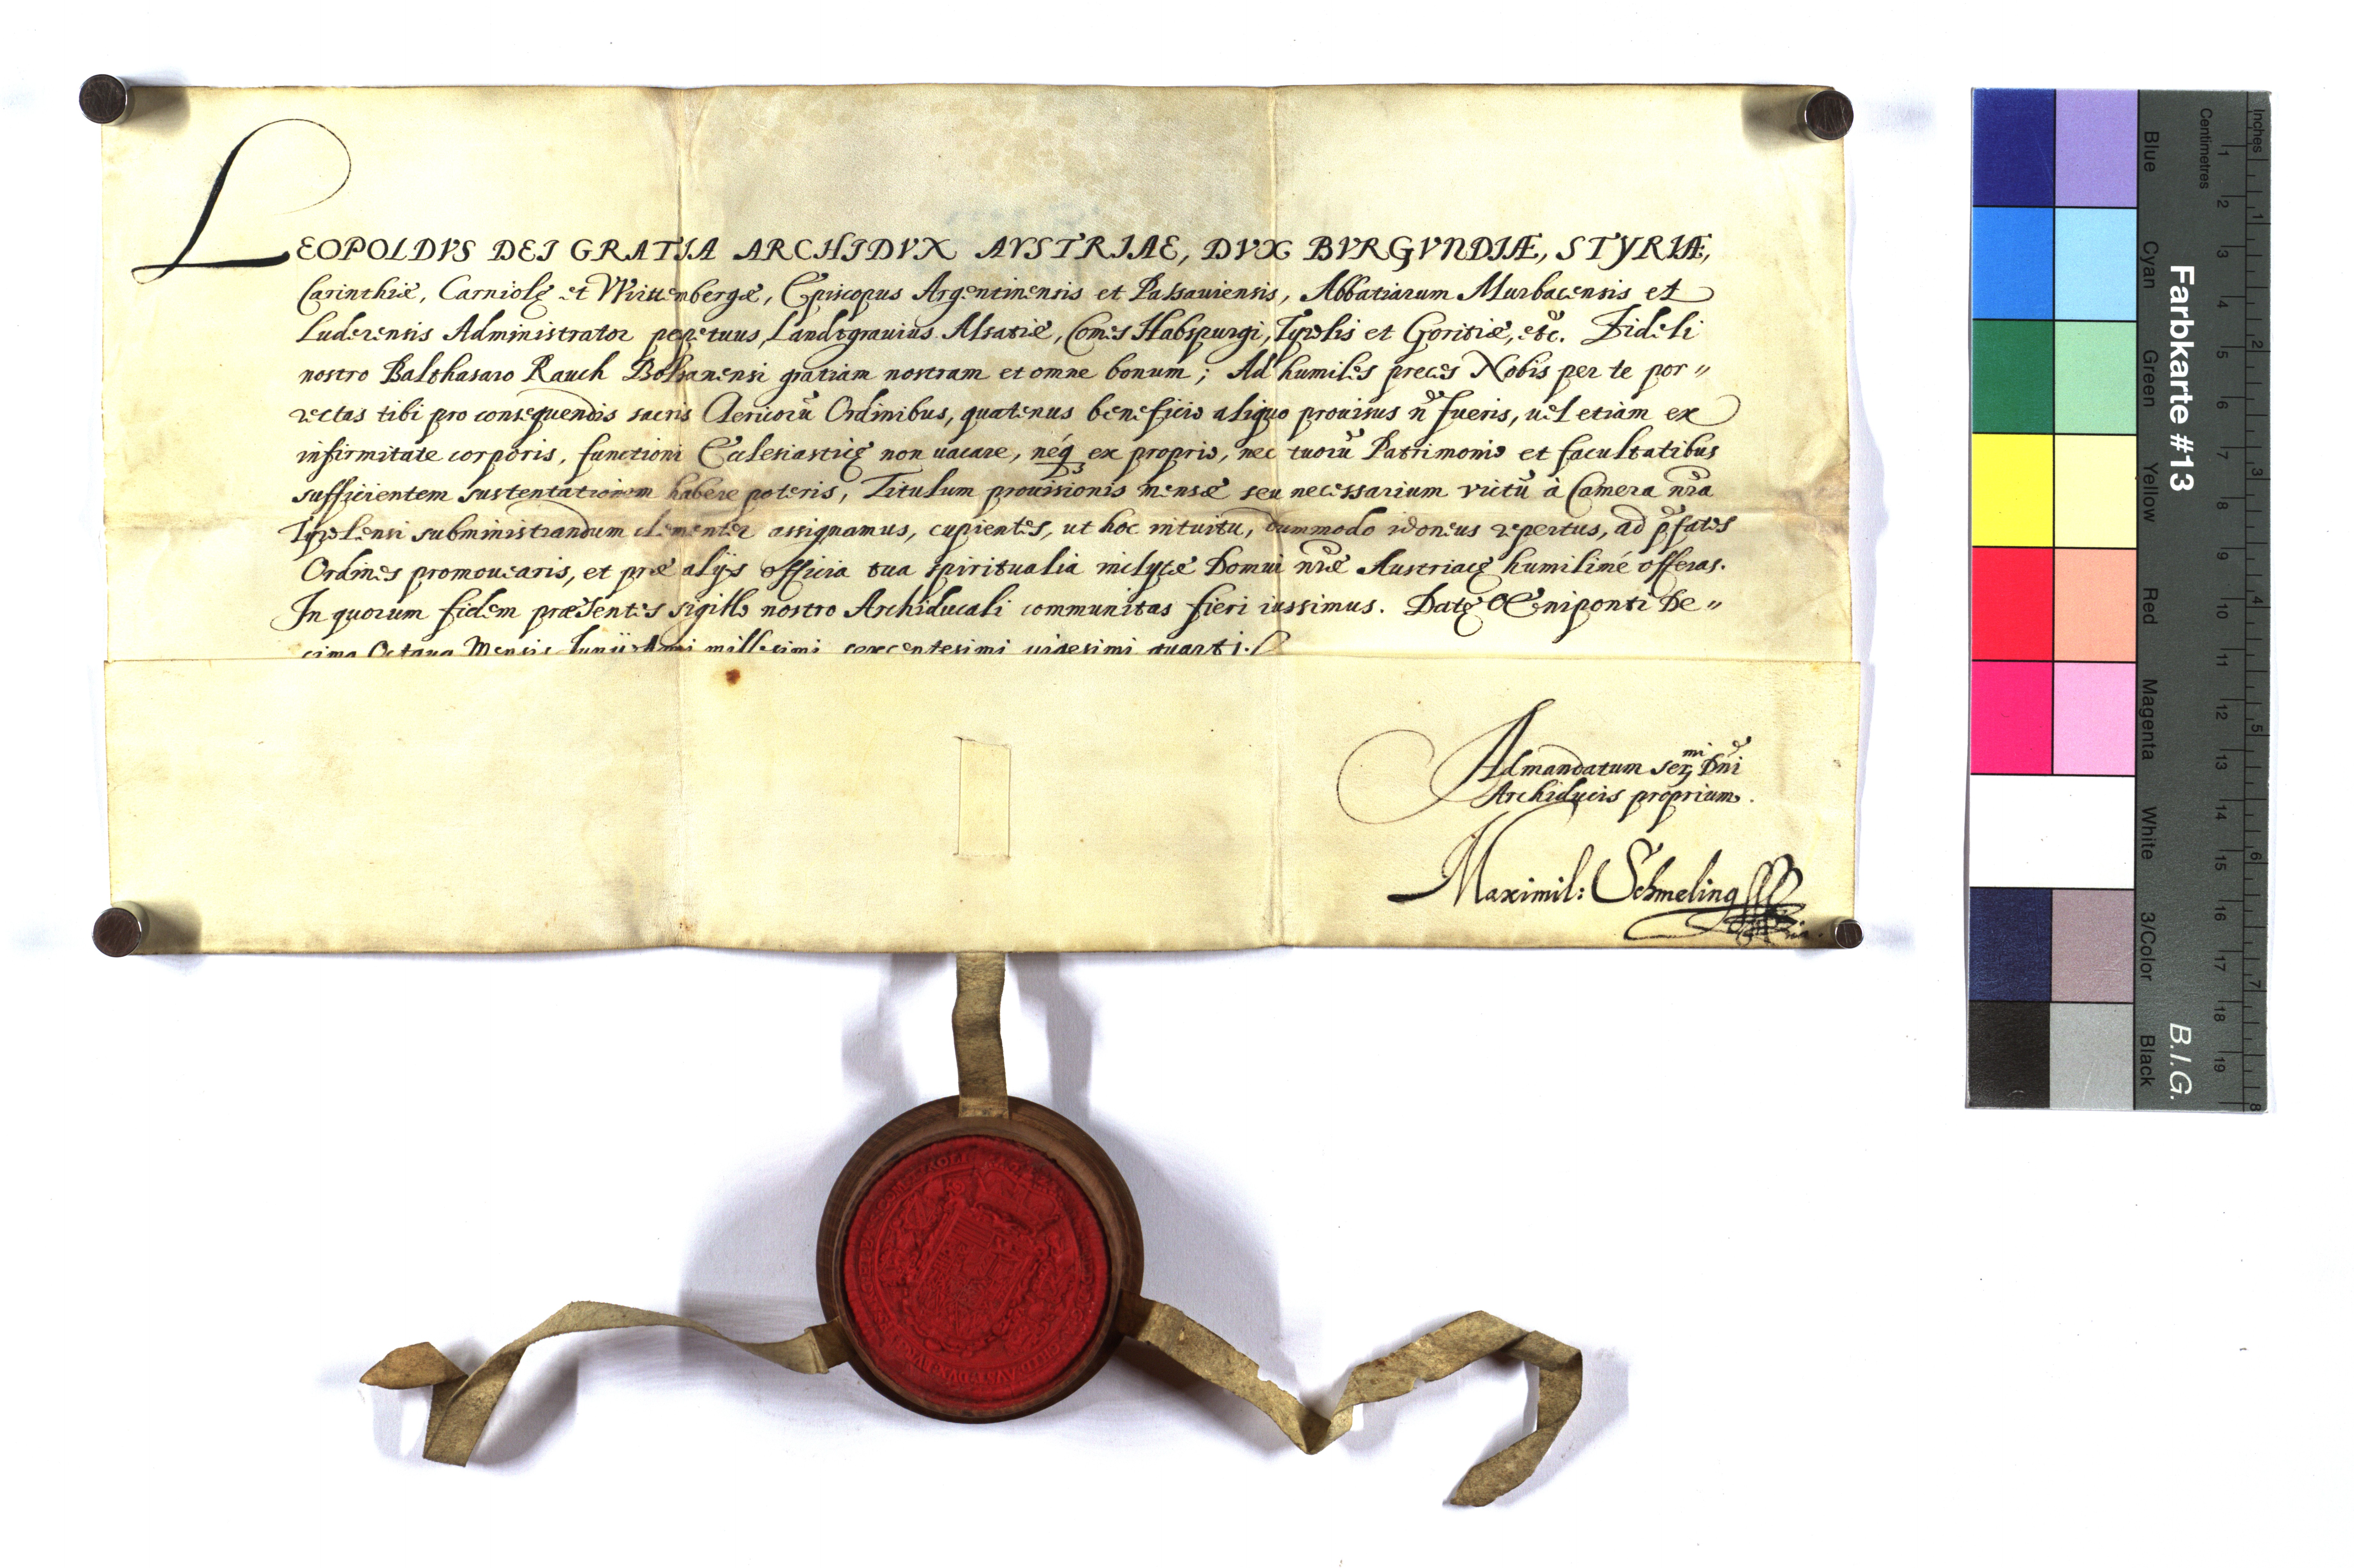 LEOPOLDVS DEI GRATIA ARCHIDVX AVSTRIAE, DVX BVRGVNDIÆ, STYRIÆ,
Carinthiæ, Carniolę et Wirttenbergæ, Episcopus Argentinensis et Passauiensis, Abbatiarum Murbacensis et
Luderensis Administrator perpetuus, Landtgrauius Alsatiæ, Comes Habspurgi, Tyrolis et Goritiæ, etc. Fideli
nostro Balthasaro Rauch Bolsanensi gratiam nostram et omne bonum; Ad humiles preces Nobis per te por„
rectas tibi pro consequendis sacris Clericorū Ordinibus, quatenus beneficio aliquo prouisus n̄ fueris, uel etiam ex
infirmitate corporis, functioni Ecclesiasticę non uacare, neq₃ ex proprio, nec tuorū Patrimonio et facultatibus
sufficientem sustentationem habere poteris, Titulum prouisionis mensæ seu necessarium victū à Camera nr̄a
Tyrolensi subministrandum clementer assignamus, cupientes, ut hoc intuitu, dummodo idoneus repertus, ad p̄fatos
Ordines promouearis, et præ alijs officia tua spiritualia inclytæ Domui nr̄æ Austriacę humilimé offeras.
In quorum fidem præsentes sigillo nostro Archiducali communitas fieri iussimus. Datę Œniponti De„
cima Octaua Mensis Iunij Anni millesimi sexcentesimi uigesimi quarti.
Ad mandatum Serᵐⁱ Dn̄i
Archiducis proprium.
Maximil: Schmeling
Inches
Centimetres
1 2 3 4 5 6 7 8 9 10 11 12 13 14 15 16 17 18 19
1 2 3 4 5 6 7 8
Farbkarte #13
B.I.G.
Blue
Cyan
Green
Yellow
Red
Magenta
White
3/Color
Black